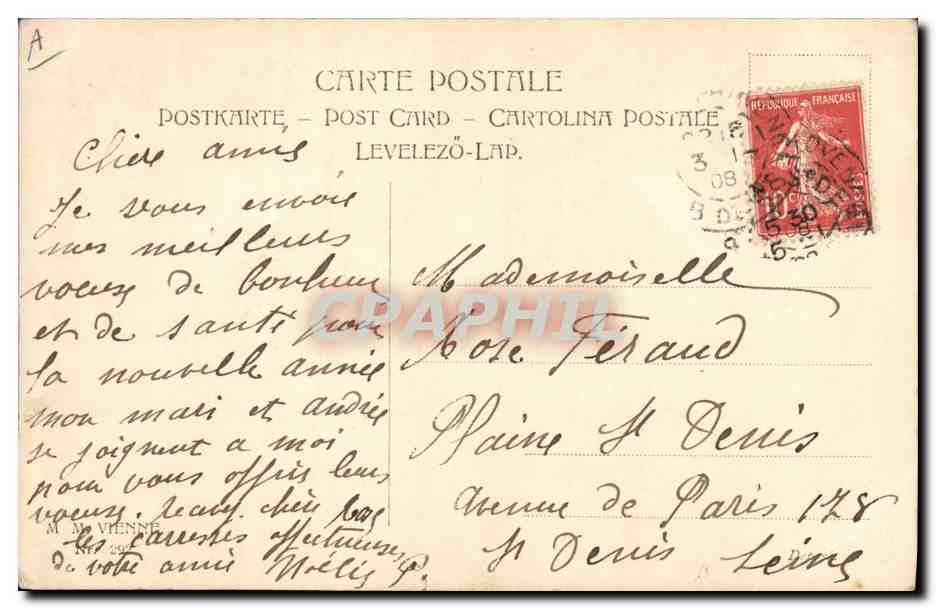 A
CARTE POSTALE
POSTKARTE – POST CARD – CARTOLINA POSTALE
LEVELEZŐ-LAP.
RÉPUBLIQUE FRANÇAISE
10
3
08
30
Chère amie
Je vous envoie
mes meilleurs
voeux de bonheur
et de santé pour
la nouvelle année
mon mari et andrée
se joignent a moi
pour vous offrir leurs
voeux. chère
les caresses affectueuses
de votre amie Noélie P.
M. M. VIENNE
Nr. 29
Mademoiselle
Rose Féraud
Plaine St Denis
Avenue de Paris 178
St Denis Seine
CPAPHIL